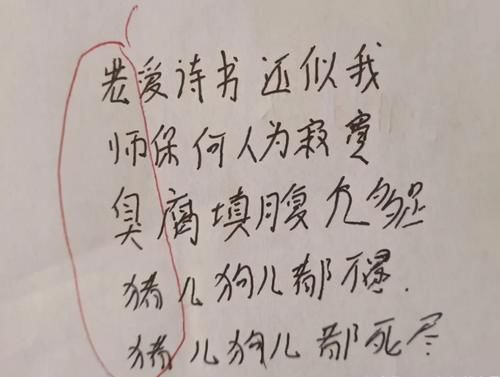 老爱诗书还似我
师保何人为寂寞
臭腐填腹九多怨
猪儿狗儿都不
猪儿狗儿都死尽